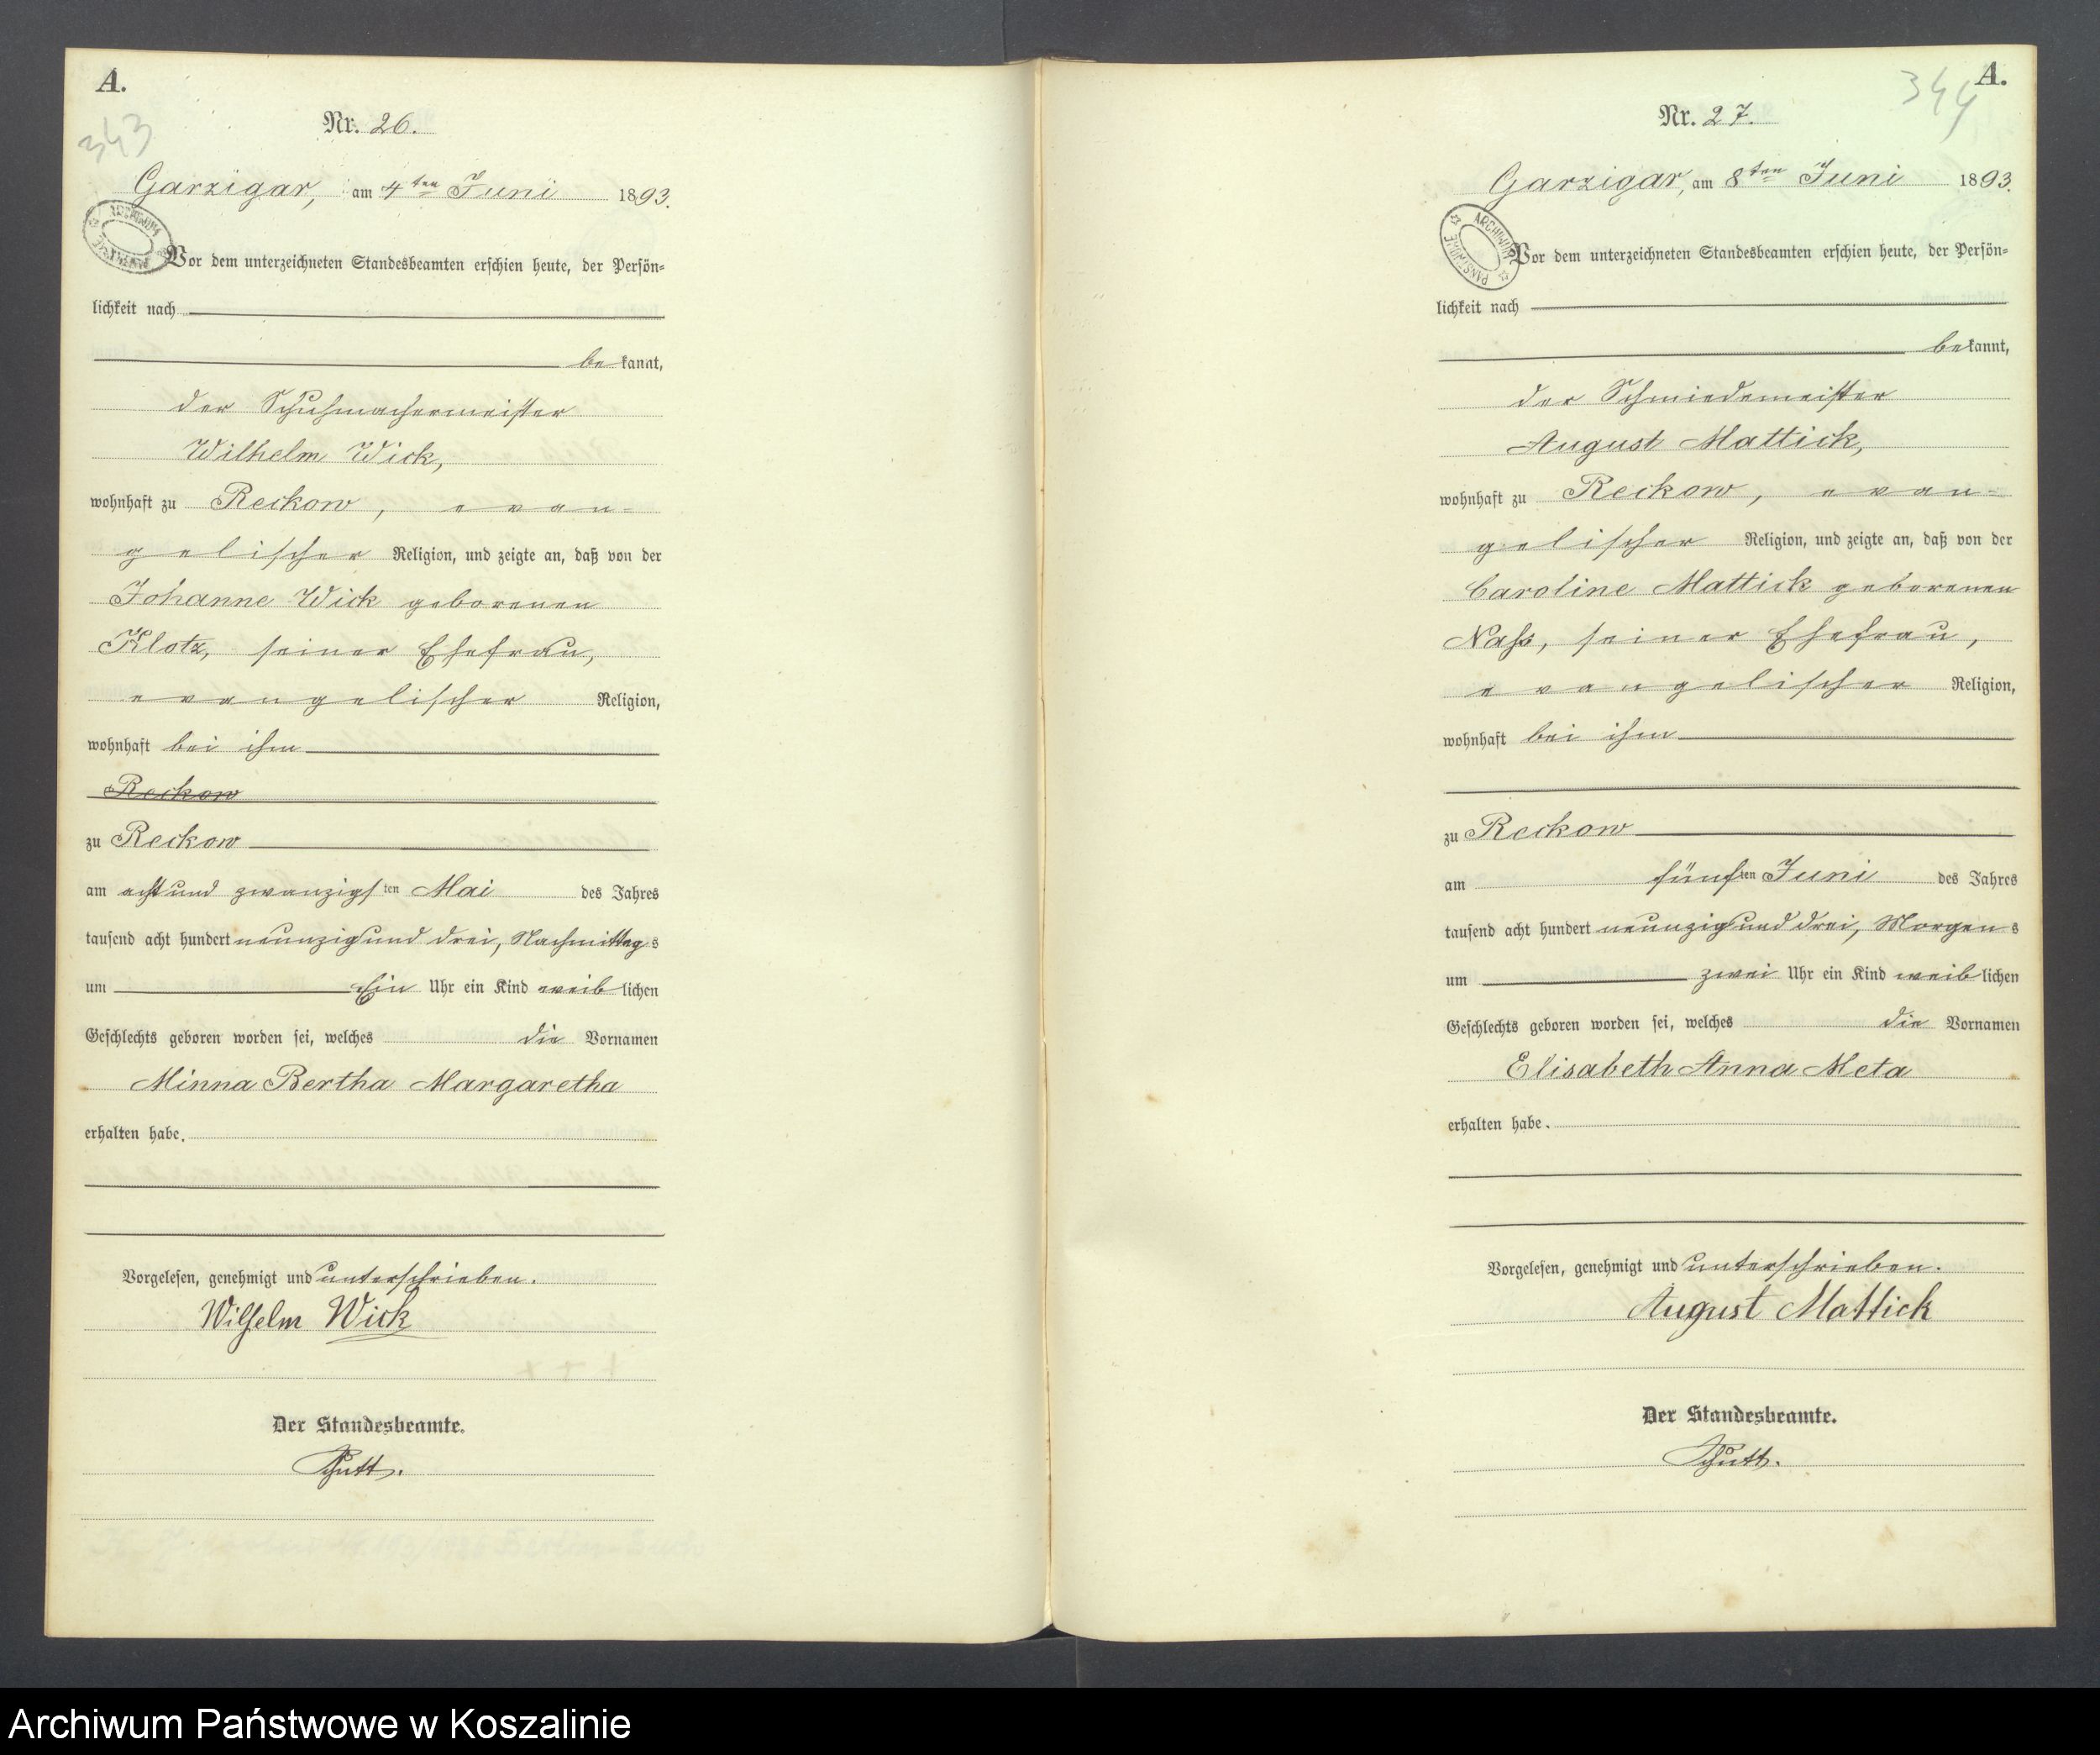 A.
343
Nr. 26.
Garzigar, am 4ten Juni 1893.
ARCHIWUM PAŃSTWOWE
Vor dem unterzeichneten Standesbeamten erschien heute, der Persön=
lichkeit nach
bekannt,
der Schuhmachermeister
Wilhelm Wick,
wohnhaft zu Reckow, evan-
gelischer Religion, und zeigte an, daß von der
Johanne Wick geborenen
Klotz, seiner Ehefrau,
evangelischer Religion,
wohnhaft bei ihm
Reckow
zu Reckow
am acht und zwanzigsten Mai des Jahres
tausend acht hundert neunzig und drei, Nachmittags
um Ein Uhr ein Kind weiblichen
Geschlechts geboren worden sei, welches die Vornamen
Minna Bertha Margaretha
erhalten habe.
Vorgelesen, genehmigt und unterschrieben.
Wilhelm Wick
Der Standesbeamte.
A.
344
Nr. 27.
Garzigar, am 8ten Juni 1893.
ARCHIWUM PAŃSTWOWE
Vor dem unterzeichneten Standesbeamten erschien heute, der Persön=
lichkeit nach
bekannt,
der Schmiedemeister
August Mattick,
wohnhaft zu Reckow, evan-
gelischer Religion, und zeigte an, daß von der
Caroline Mattick geborenen
Nass, seiner Ehefrau,
evangelischer Religion,
wohnhaft bei ihm
zu Reckow
am fünften Juni des Jahres
tausend acht hundert neunzig und drei, Morgens
um zwei Uhr ein Kind weiblichen
Geschlechts geboren worden sei, welches die Vornamen
Elisabeth Anna Meta
erhalten habe.
Vorgelesen, genehmigt und unterschrieben.
August Mattick
Der Standesbeamte.
Archiwum Państwowe w Koszalinie